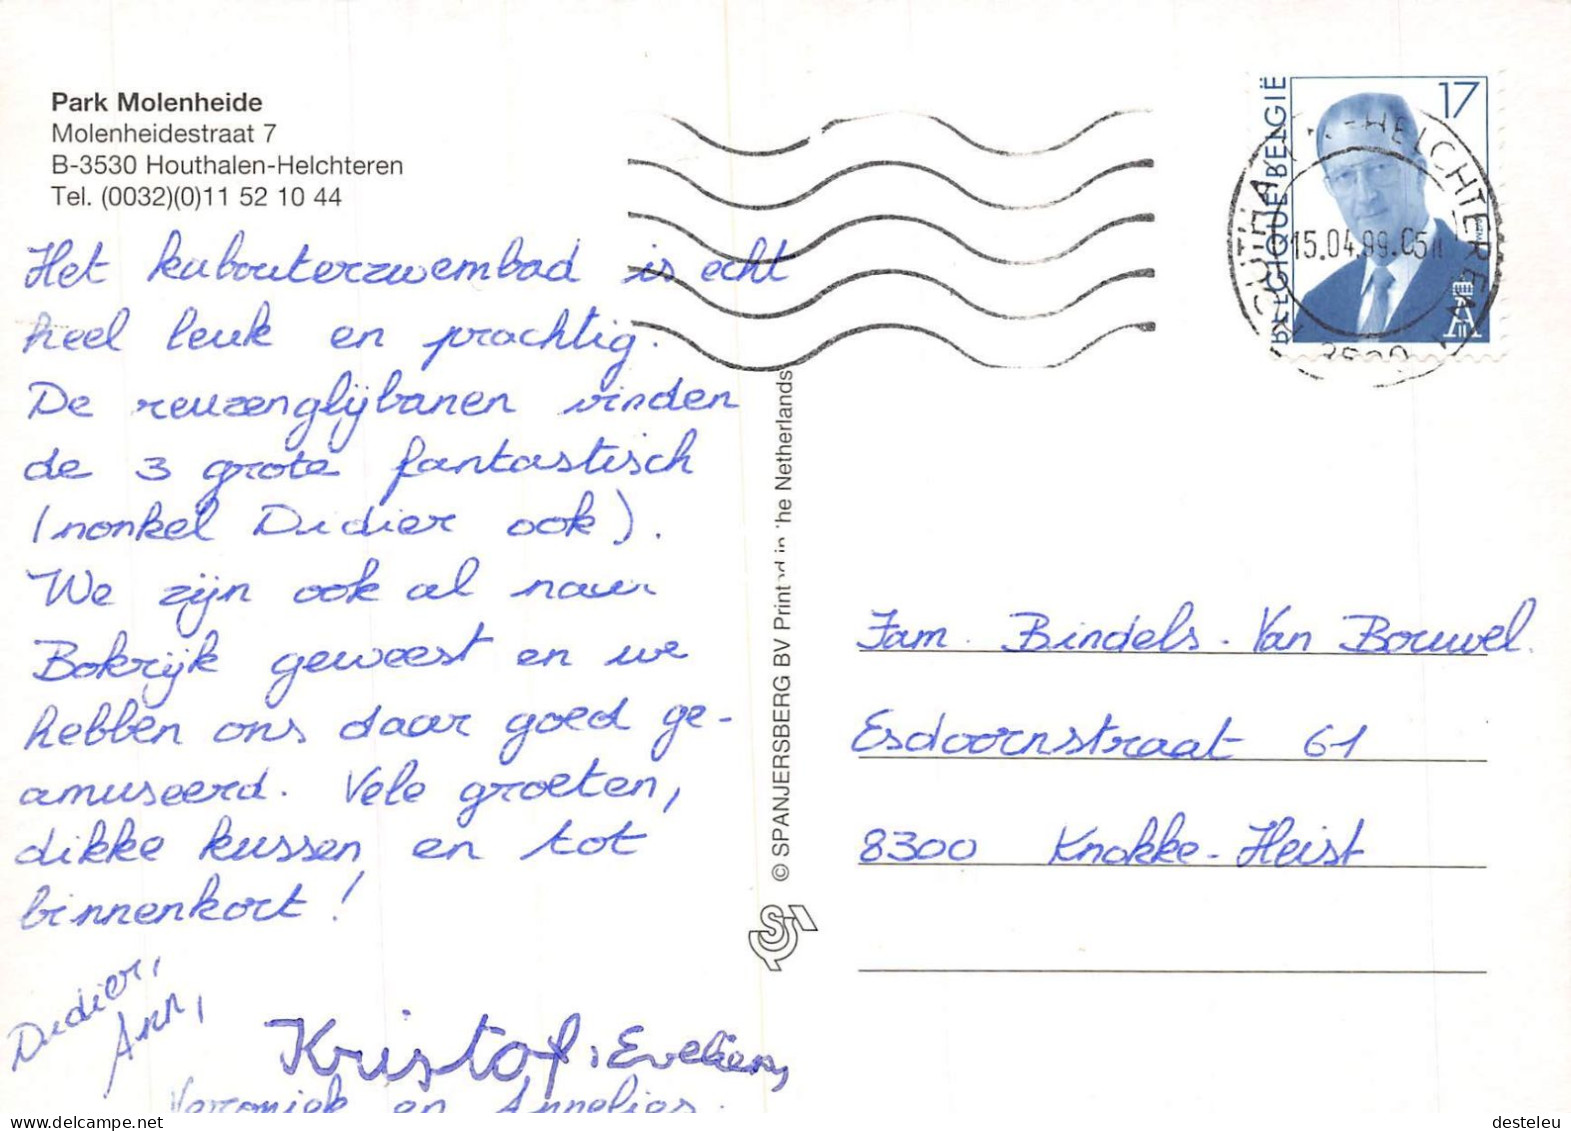 Park Molenheide
Molenheidestraat 7
B-3530 Houthalen-Helchteren
Tel. (0032)(0)11 52 10 44
Het kabouterzwembad is echt
heel leuk en prachtig.
De reuzenglijbanen vinden
de 3 grote fantastisch
(nonkel Didier ook).
We zijn ook al naar
Bokrijk geweest en we
hebben ons daar goed ge-
amuseerd. Vele groeten,
dikke kussen en tot
binnenkort!
Didier,
Ann,
Kristof, Evelien,
Veroniek en Annelies.
© SPANJERSBERG BV Printed in The Netherlands
BELGIQUE BELGIË
17
-HELCHTEREN
15.04.99
3530
Fam. Bindels-Van Bouwel.
Esdoornstraat 61
8300 Knokke-Heist
desteleu